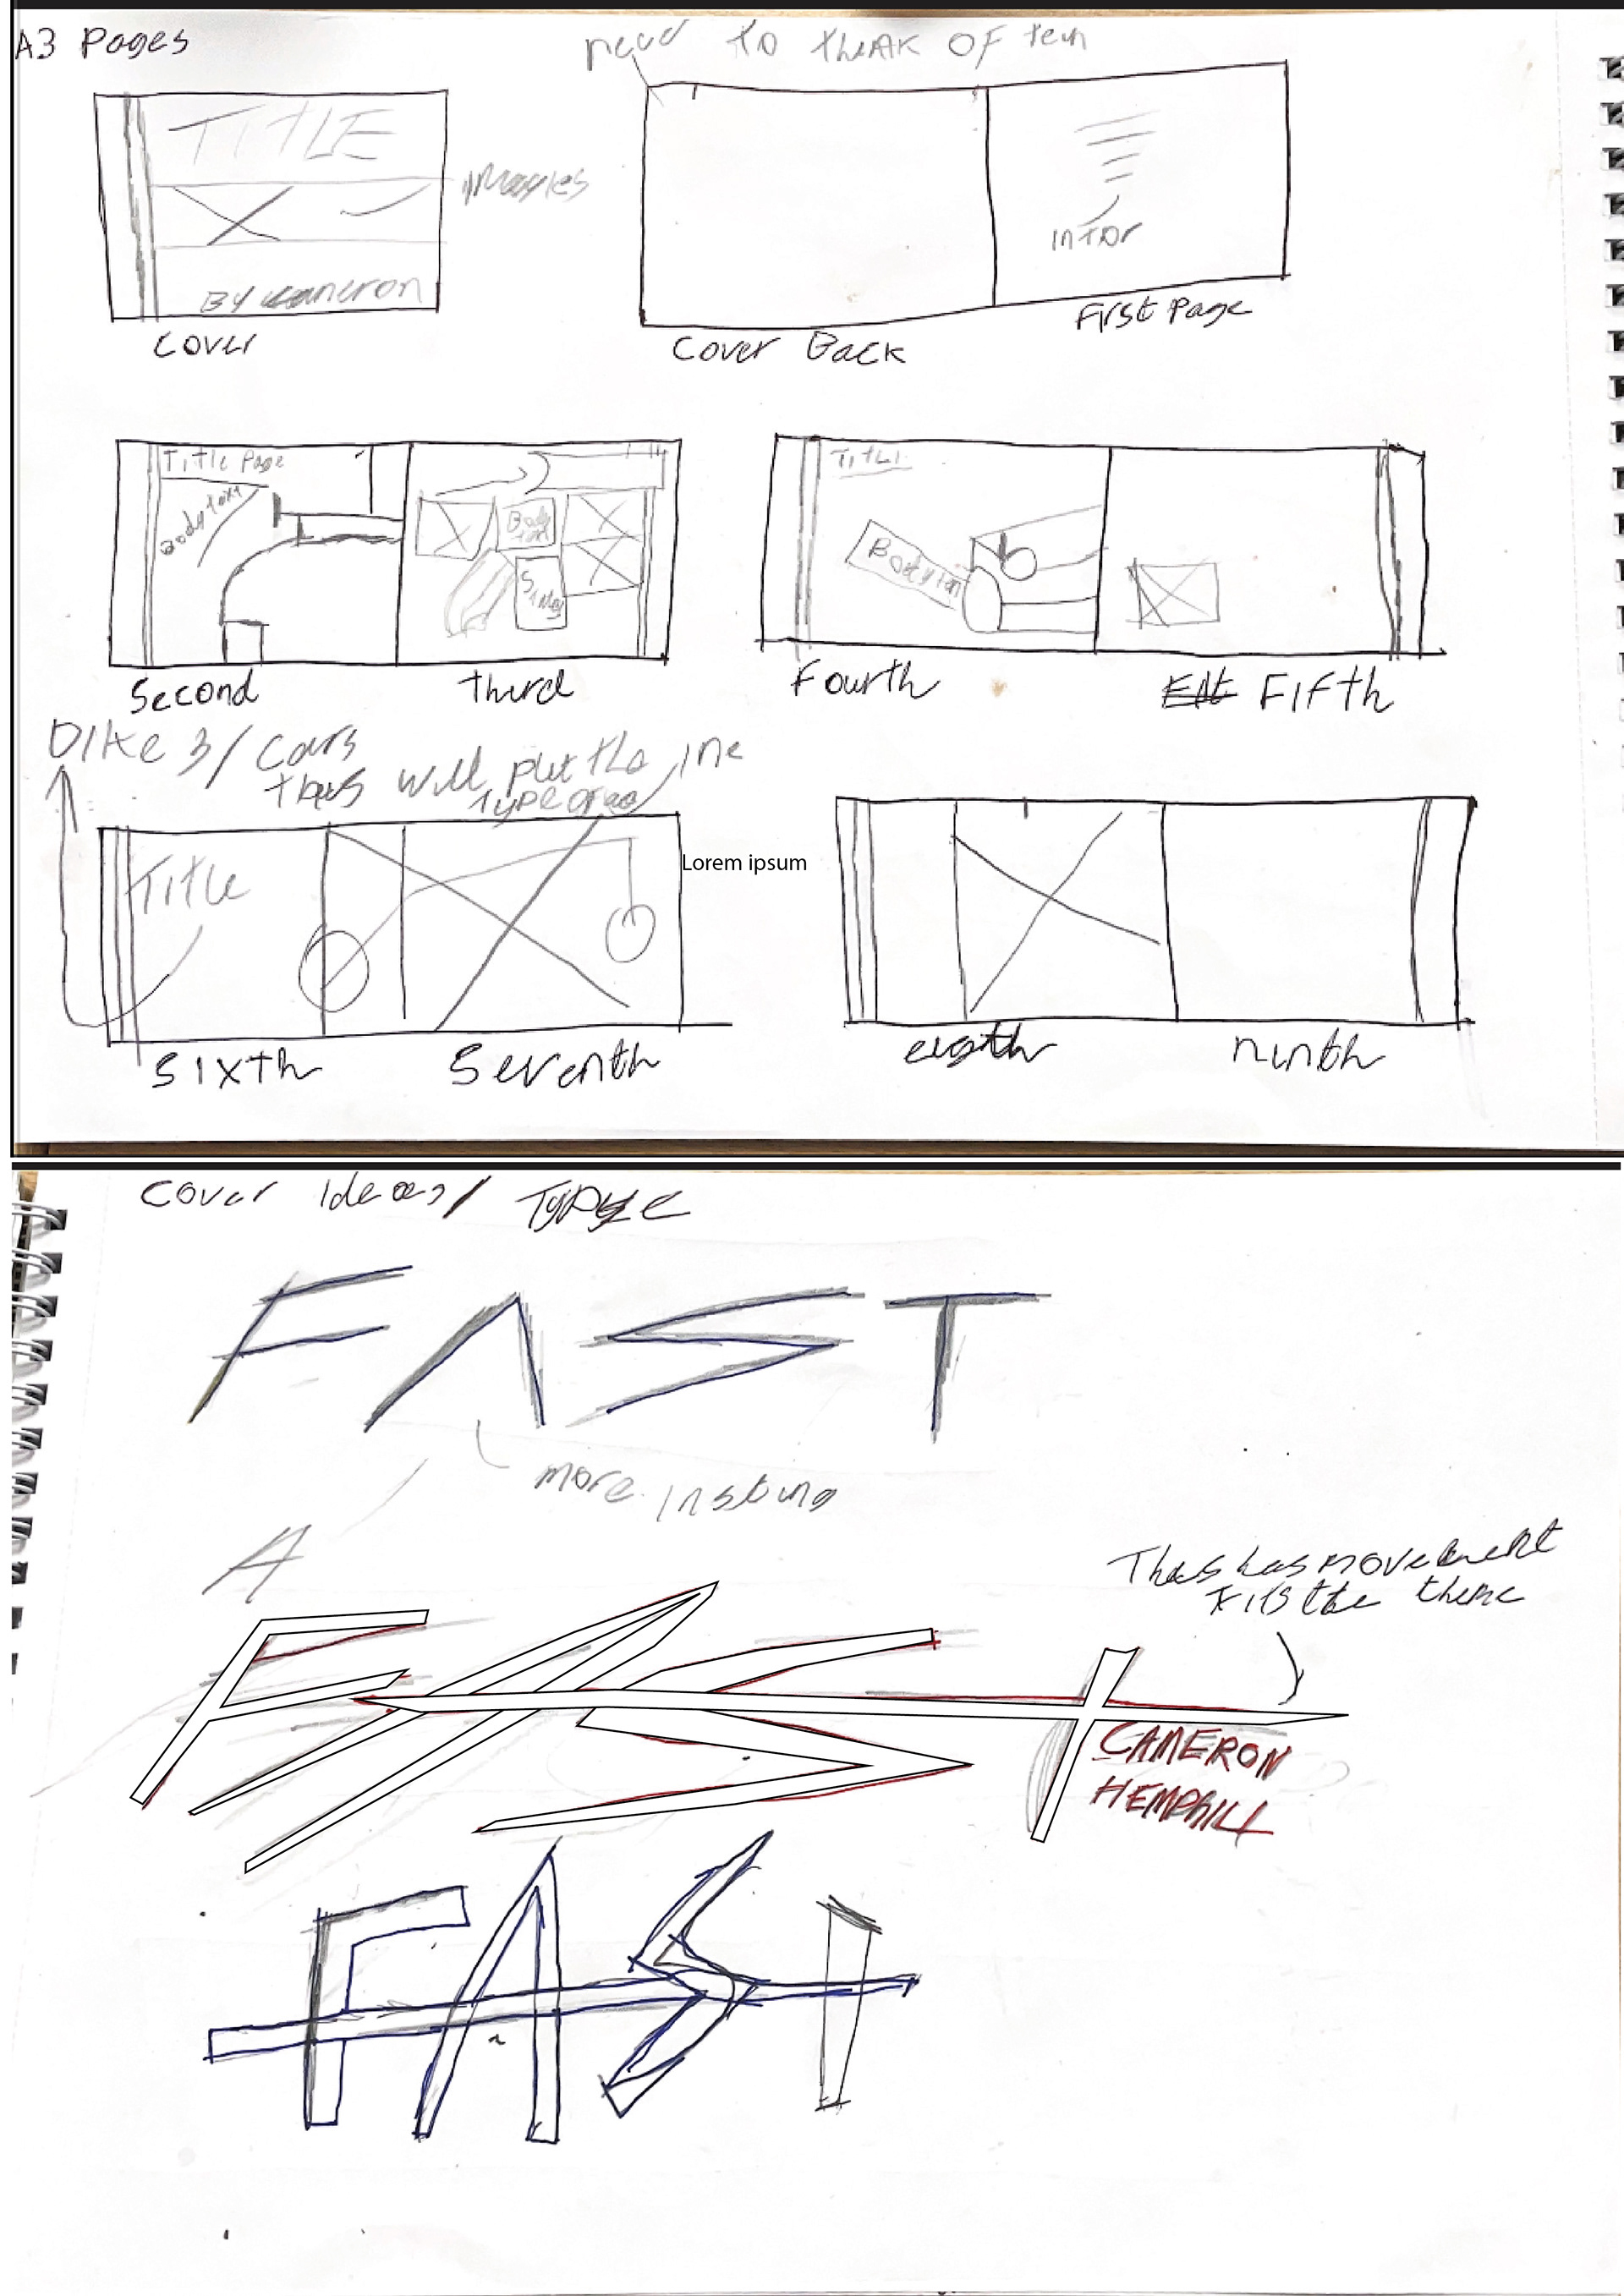 A3 Pages
need to think OF
TITLE
images
By Cameron
Cover
intor
First Page
Cover Back
Title Page
Body text
Body
Second
third
Title
Body
Fourth
FIFth
3/ cars
will put the
type of
Title
Lorem ipsum
SIXTH
Seventh
eigth
ninth
Cover Ideas/ Type
FAST
more
A
This has movement
Fits the theme
FAST
CAMERON
HEMPhILL
FAST